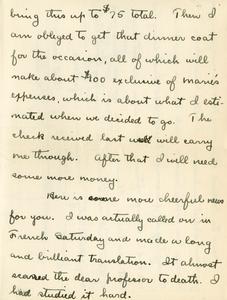 bring this up to $75 total. Then I
am obliged to get that dinner coat
for the occasion, all of which will
make about $400 exclusive of Marie's
expenses, which is about what I esti-
mated when we decided to go. The
check received last will carry
me through. After that I will need
some more money.
Here is some more cheerful news
for you. I was actually called on in
French Saturday and made a long
and brilliant translation. It almost
scared the dear professor to death. I
had studied it hard.